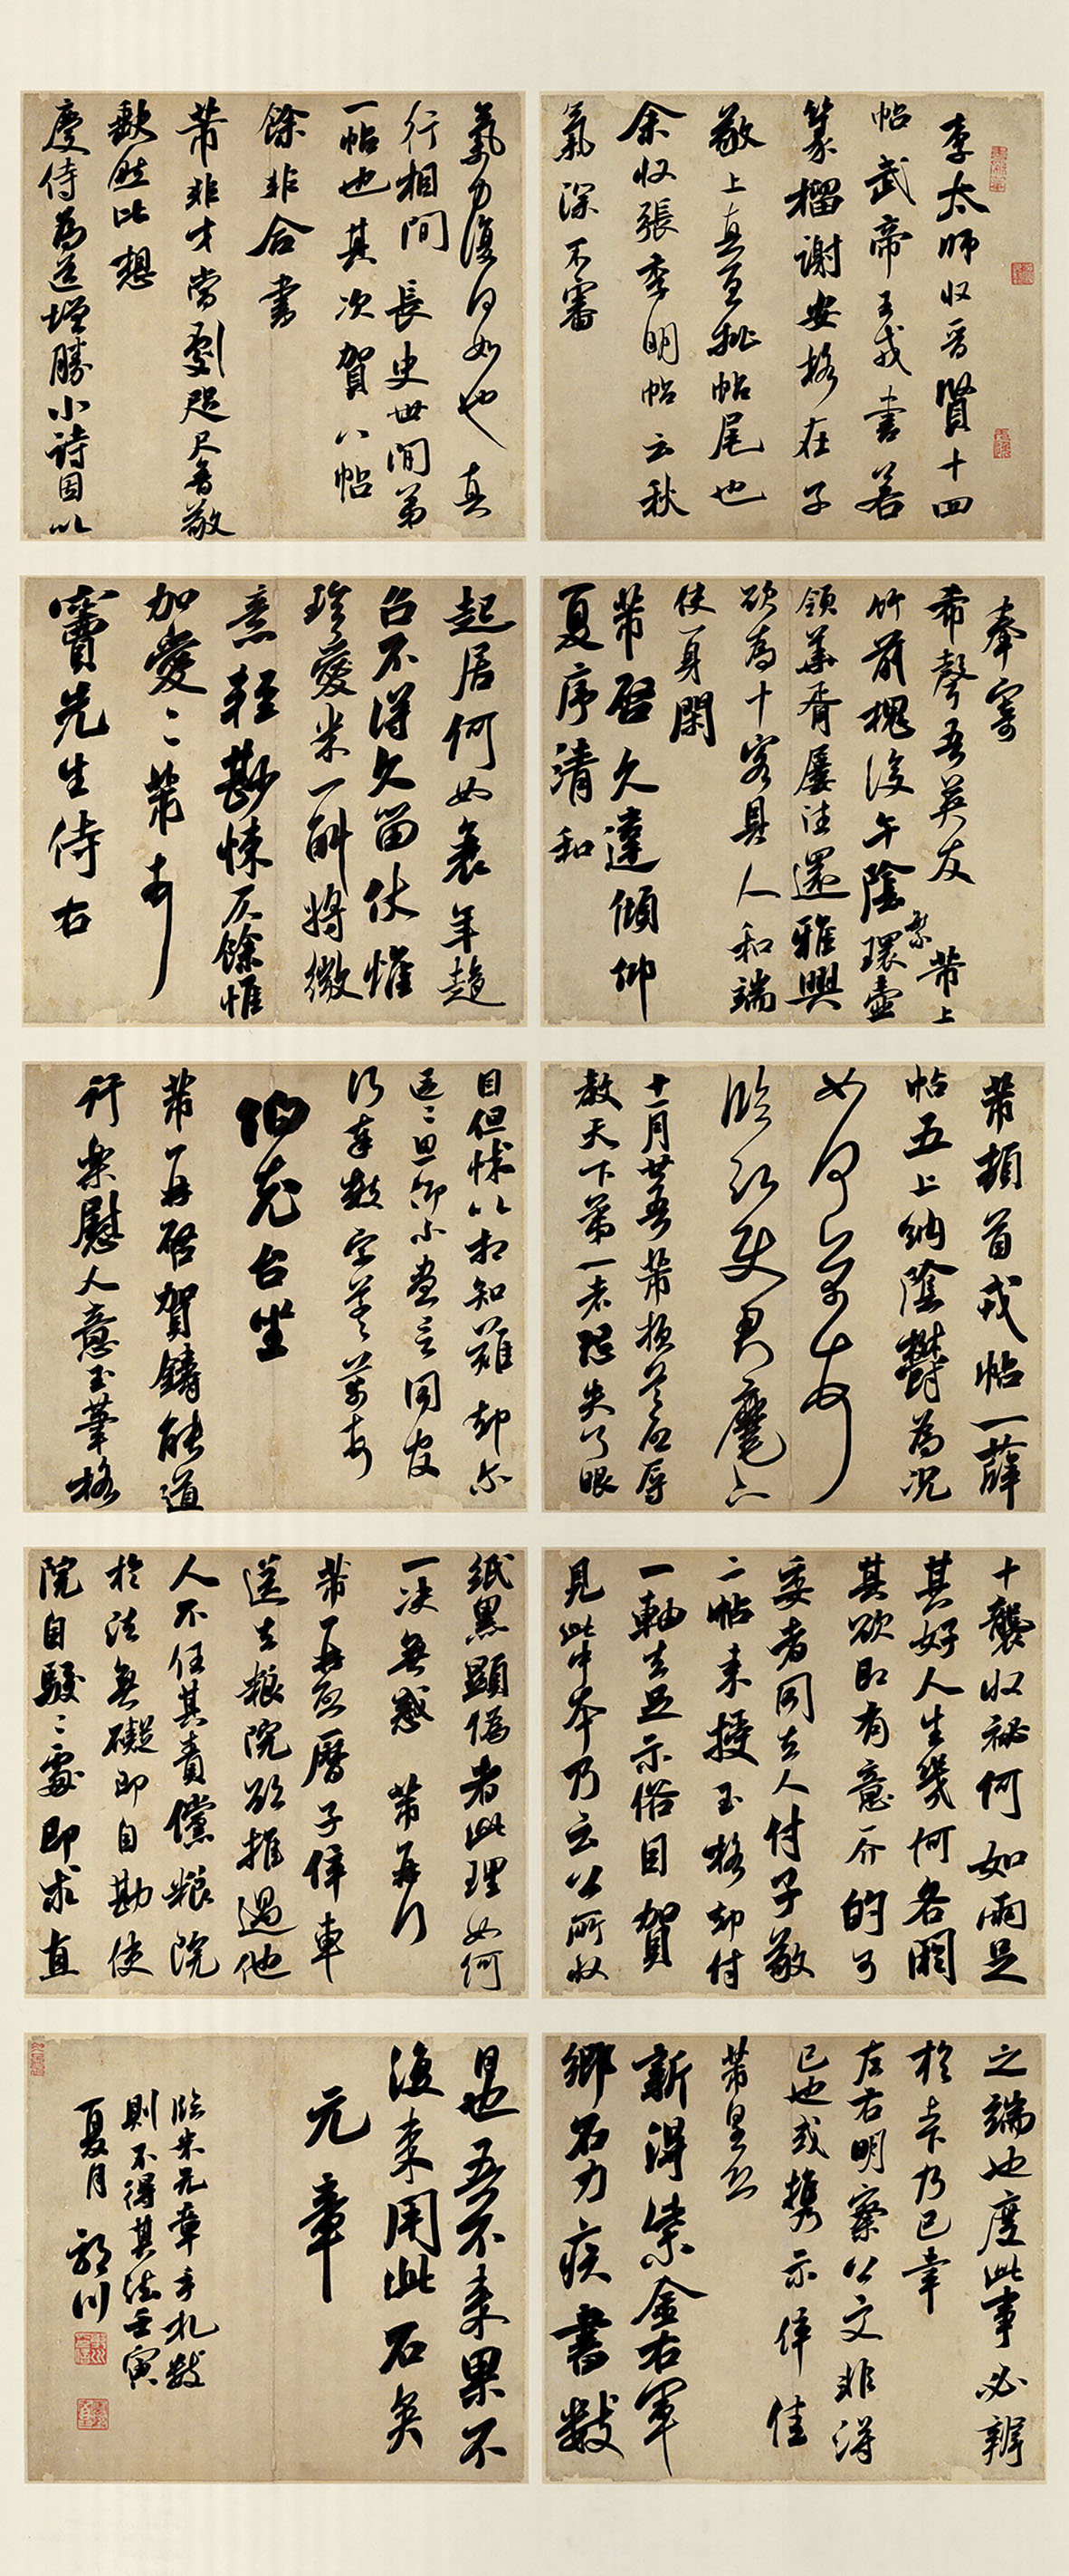 李太師收晉賢十四
帖武帝王戎書若
篆榴謝安格在子
敬上真至批帖尾也
余收張季明帖云秋
氣深不審
氣力復何如也真
行相間長史世間第
一帖也其次賀八帖
餘非合書
芾非才當劇咫尺音敬
缺然比想
慶侍為道增勝小詩因以
奉寄
希聲吾英友 芾上
竹前槐後午陰繁環壺
領華胥屢往還雅興
欲為十客具人和端
使一身閑
芾啓久違傾仰
夏序清和
起居何如衰年趨
召不得久留伏惟
珍愛米一斛將微
意輕尠悚仄餘惟
加愛加愛芾頓首
竇先生侍右
芾頓首戎帖一薛
帖五上納陰鬱為況
如何芾頓首
臨沂使君麾下
十一月廿五日芾頓首啓辱
教天下第一者恐失了眼
目但怵以相知難却爾
區區思仰不盡言同官
行奉數字草草芾頓首
伯充台坐
芾再啓賀鑄能道
行樂慰人意玉筆格
十襲收秘何如雨足
其好人生幾何各闕
其欲即有意一介的可
委者同去人付子敬
二帖來授玉格却付
一軸去足示俗目賀
見此中本乃云公所收
紙黑顯偽者此理如何
一決無惑 芾再行
芾再啓曆子倅車
送去糧院欲推過他
人不任其責儻糧院
於法無礙即自勘使
院自駁駁處即求直
之端也度此事必辨
於去下乃已幸
左右明察公文非得
已也或攜示倅佳
芾皇恐
新得紫金右軍
鄉石力疾書數
日也吾不來果不
復來用此石矣
元章
臨米元章手札數
則不得其法壬寅
夏月